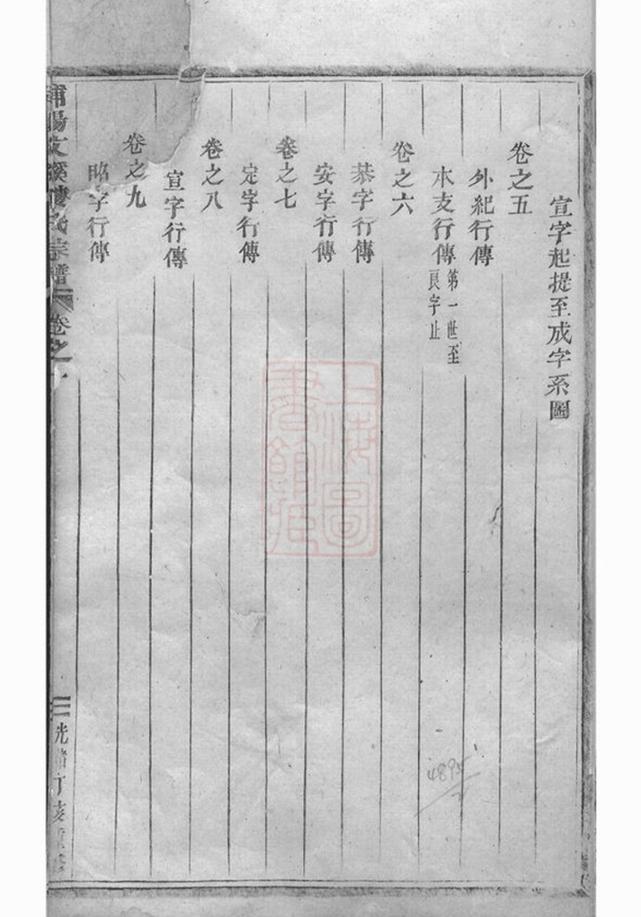 宣字起提至成字系圖
卷之五
外紀行傳
水支行傳第一世至良字止
卷之六
恭字行傳
安字行傳
卷之七
定字行傳
卷之八
宣字行傳
卷之九
昭字行傳
浦陽文溪樓氏宗譜 卷之一
光緒丁亥重修
上海圖書館藏
4895